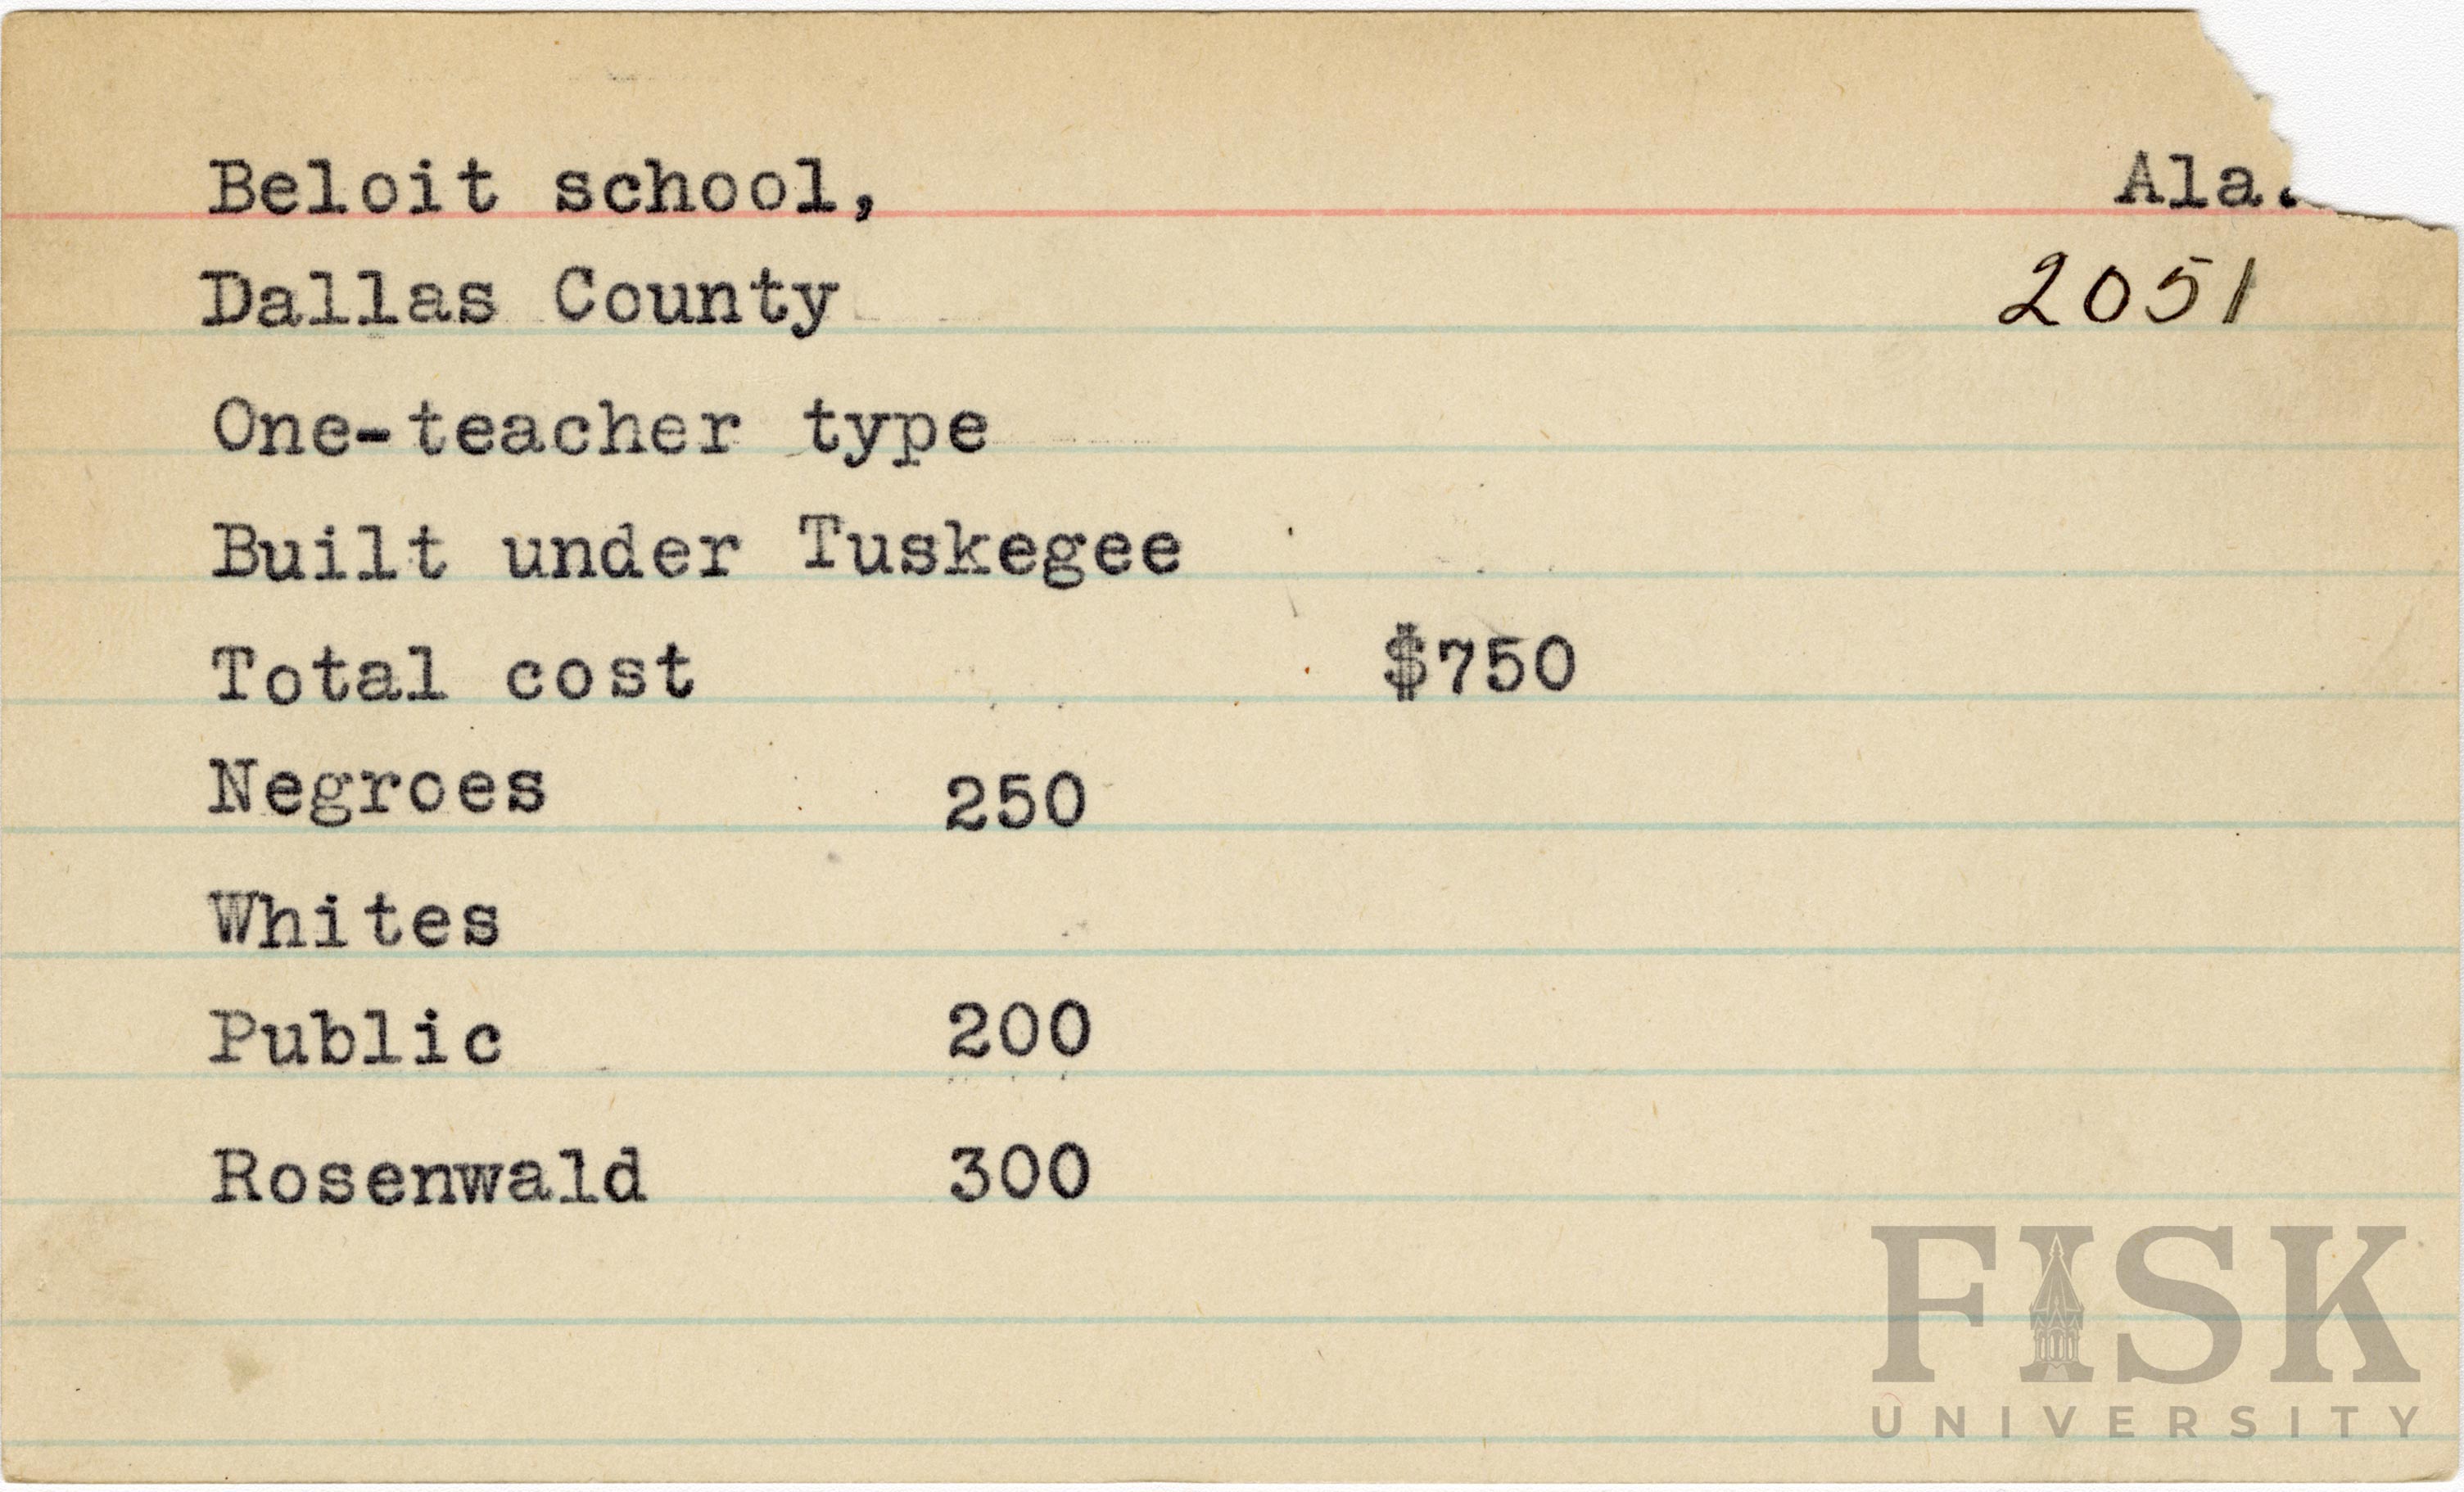 Beloit school, Ala.
Dallas County 2051
One-teacher type
Built under Tuskegee
Total cost $750
Negroes 250
Whites
Public 200
Rosenwald 300
FISK
UNIVERSITY